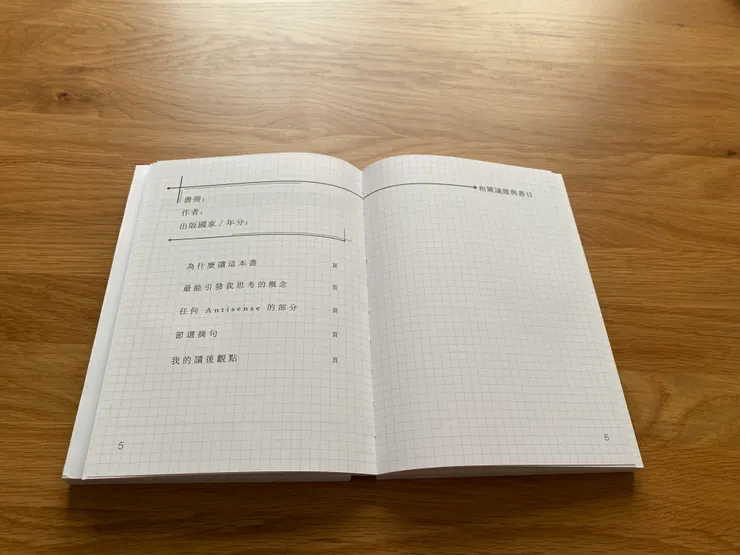 書冊：
作者：
出版國家／年分：
為什麼讀這本書 頁
最能引發我思考的概念 頁
任何 Antisense 的部分 頁
節選摘句 頁
我的讀後觀點 頁
5
相關議題與書目
6